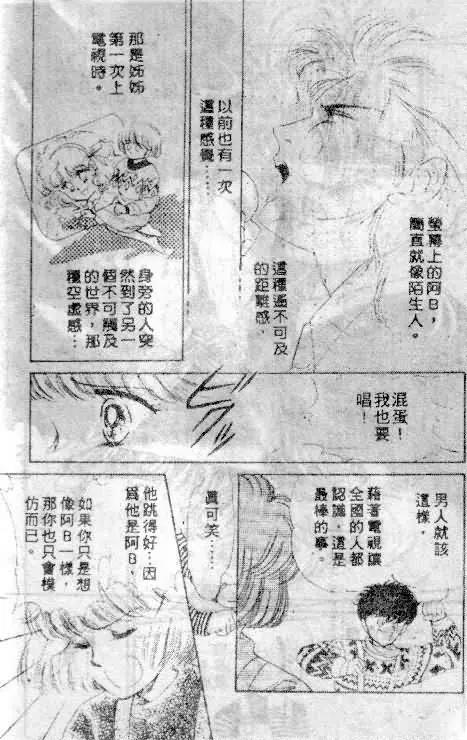 螢幕上的阿B，
簡直就像陌生人。
這種遙不可及
的距離感，
以前也有一次
這種感覺……
那是姊姊
第一次上
電視時。
身旁的人突
然到了另一
個不可觸及
的世界，那
種空虛感…
混蛋！
我也要
唱！
男人就該
這樣，
藉著電視讓
全國的人都
認識，這是
最棒的事。
真可笑……
他跳得好…因
為他是阿B，
如果你只是想
像阿B一樣，
那你也只會模
仿而已。